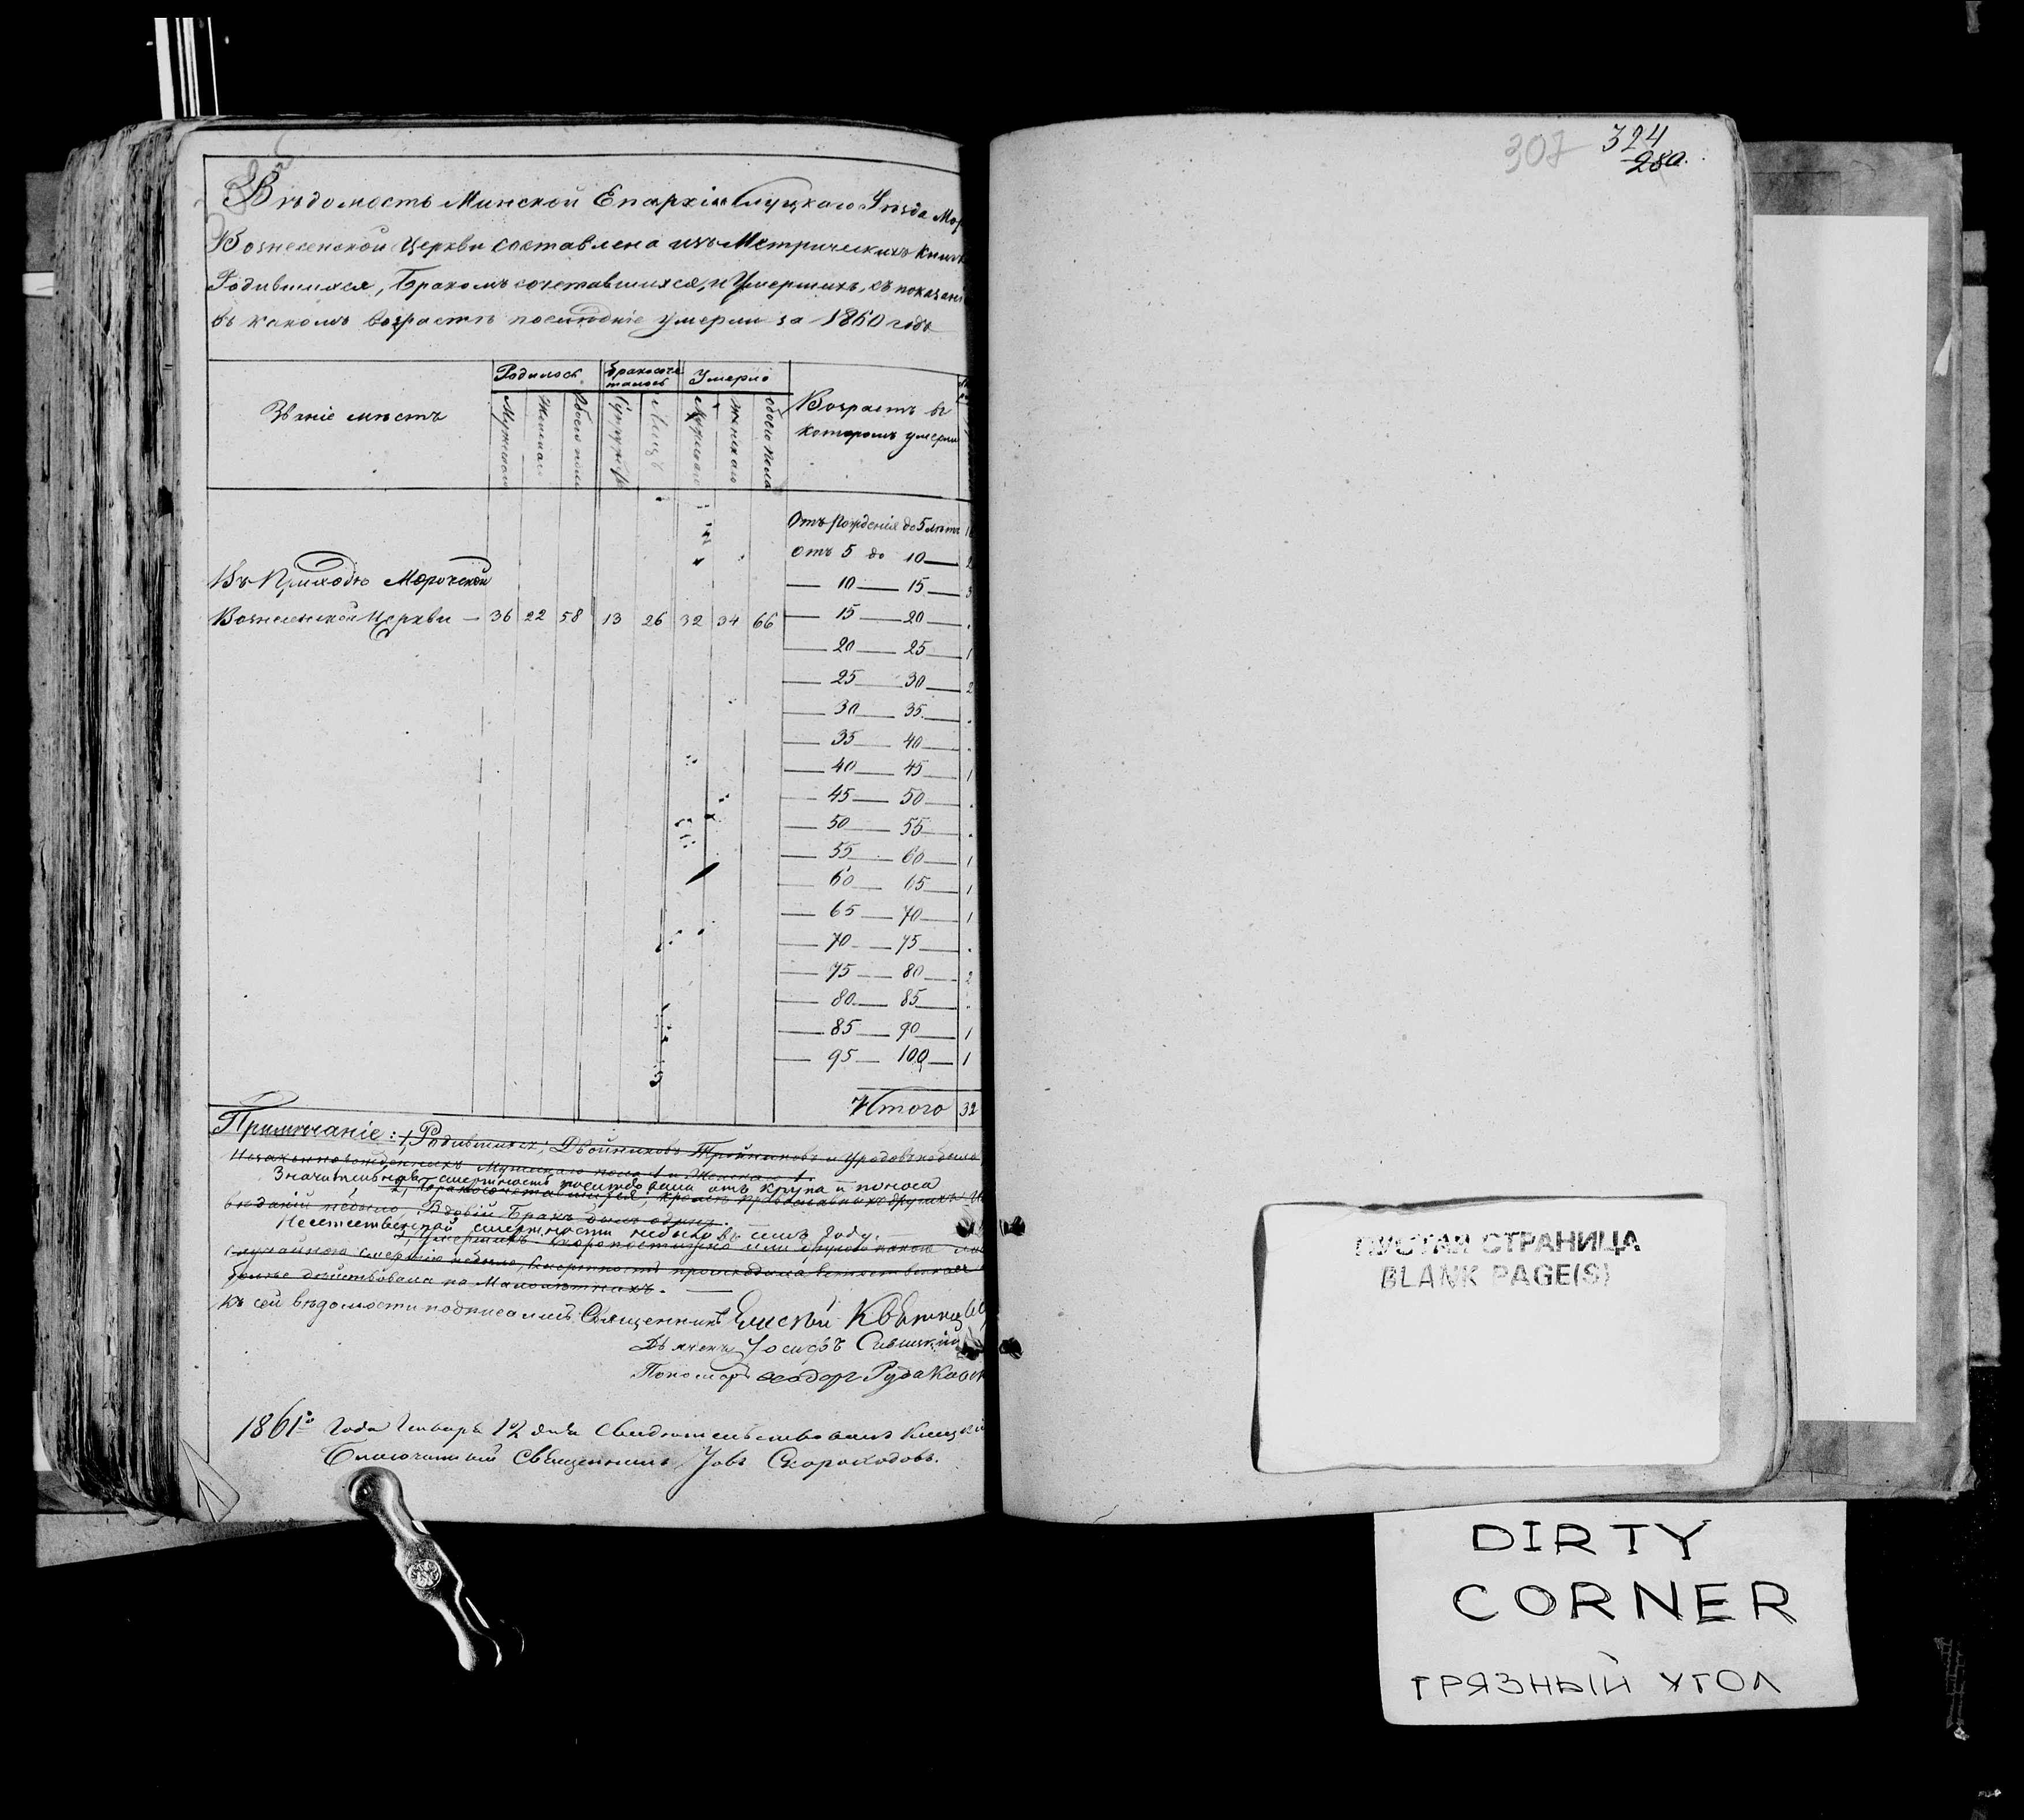 Вѣдомость Минской Епархіи Слуцкаго Уѣзда Мор
Вознесенской Церкви составлена изъ Метрическихъ Книгъ
Родившихся, Бракомъ сочетавшихся, и Умершихъ, съ показані
въ какомъ возрастѣ послѣдніе умерли за 1860 годъ
Званіе мѣстъ
Родилось
Бракосоче
талось
Умерло
Мужескаго
Женскаго
Обоего пола
Супружествъ
Лицъ
Мужескаго
Женскаго
Обоего Пола
Возрастъ въ
которомъ умерли
Отъ Рожденія до 5 лѣтъ
Отъ 5 до 10 2
10 15 3
15 20 .
20 25 1
25 30 2
30 35 .
35 40 .
40 45 1
45 50 .
50 55 .
55 60 1
60 65 1
65 70 1
70 75 .
75 80 2
80 85 .
85 90 1
95 100 1
Итого 32
Въ Приходѣ Морочской
Вознесенской Церкви — 36 22 58 13 26 32 34 66
Примѣчаніе: 1, Родившихся, Двойниковъ Тройниковъ и Уродовъ небыло
Незаконнорожденныхъ Мужескаго пола 1 и Женскаго 1.
Значительная смертность послѣдовала отъ крупа и поноса
2, Бракосочетавшихся, кромѣ православныхъ другихъ
вѣданій небыло, Вдовій Бракъ былъ одинъ.
Неестественной смертности небыло въ семъ Году.
3, Умершихъ скоропостижно или другою какою
случайною смертію небыло, Смертность происходила
болѣе дѣйствовала на Малолѣтнихъ.
Къ сей вѣдомости подписались: Священникъ Елисей
Дьячекъ Іосифъ Савицкій
Пономарь Ѳеодоръ
1861го Года Января 12 дня Свидѣтельствовалъ
Благочинный Священникъ Іовъ Скороходовъ.
307 324
280.
ПУСТАЯ СТРАНИЦА
BLANK PAGE(S)
DIRTY
CORNER
ГРЯЗНЫЙ УГОЛ